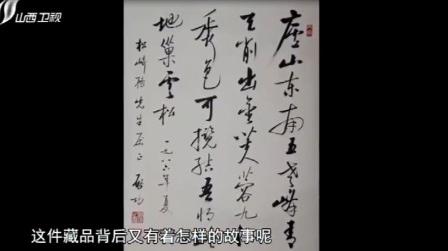 山西卫视
庐山东南五老峰青
天削出金芙蓉九江
秀色可揽结吾将此
地巢云松 一九八六年夏
松崎 先生属正 启功
这件藏品背后又有着怎样的故事呢